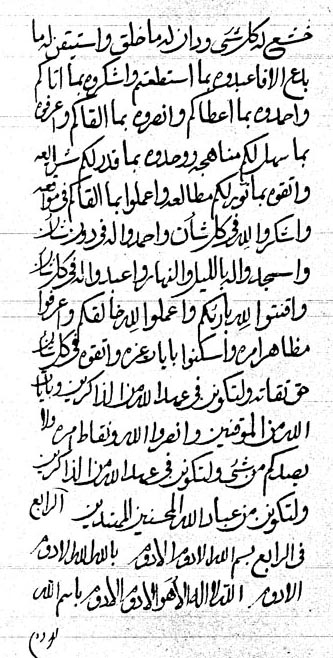 خشع له كلشئ ودان له ما خلق واستيقن له ما
بلغ الا فاعبدوه بما استطعتم واشكروه بما اتاكم
واحمدوه بما اعطاكم وانصروه بما القاكم واعرفوه
بما سهل لكم مناهجه ووحدوه بما قدر لكم شرايعه
واتقوه بما نور لكم مطالعه واعملوا بما القاكم في مواقعه
واشكروا لله في كل شأن واحمدوا له في دون شأن
واسجدوا له بالليل والنهار واعبدوا له في كل شأن
واقنتوا لله بارئكم واعملوا لله خالقكم واعرفوا
مظاهر امره واسكنوا بايات عزه واتقوه في كل شأن
حق تقاته ولتكونن في عهد الله من الذاكرين وبايات
الله من الموقنين وانصروا الله ونقاط امره ولا
يصدكم من شئ ولتكونن في عهد الله من الذاكرين
ولتكونن من عباد الله المحسنين المهتدين الرابع
في الرابع بسم الله الادوم الادوم بالله الله الادوم
الادوم الله لا اله الا هو الادوم الادوم باسم الله